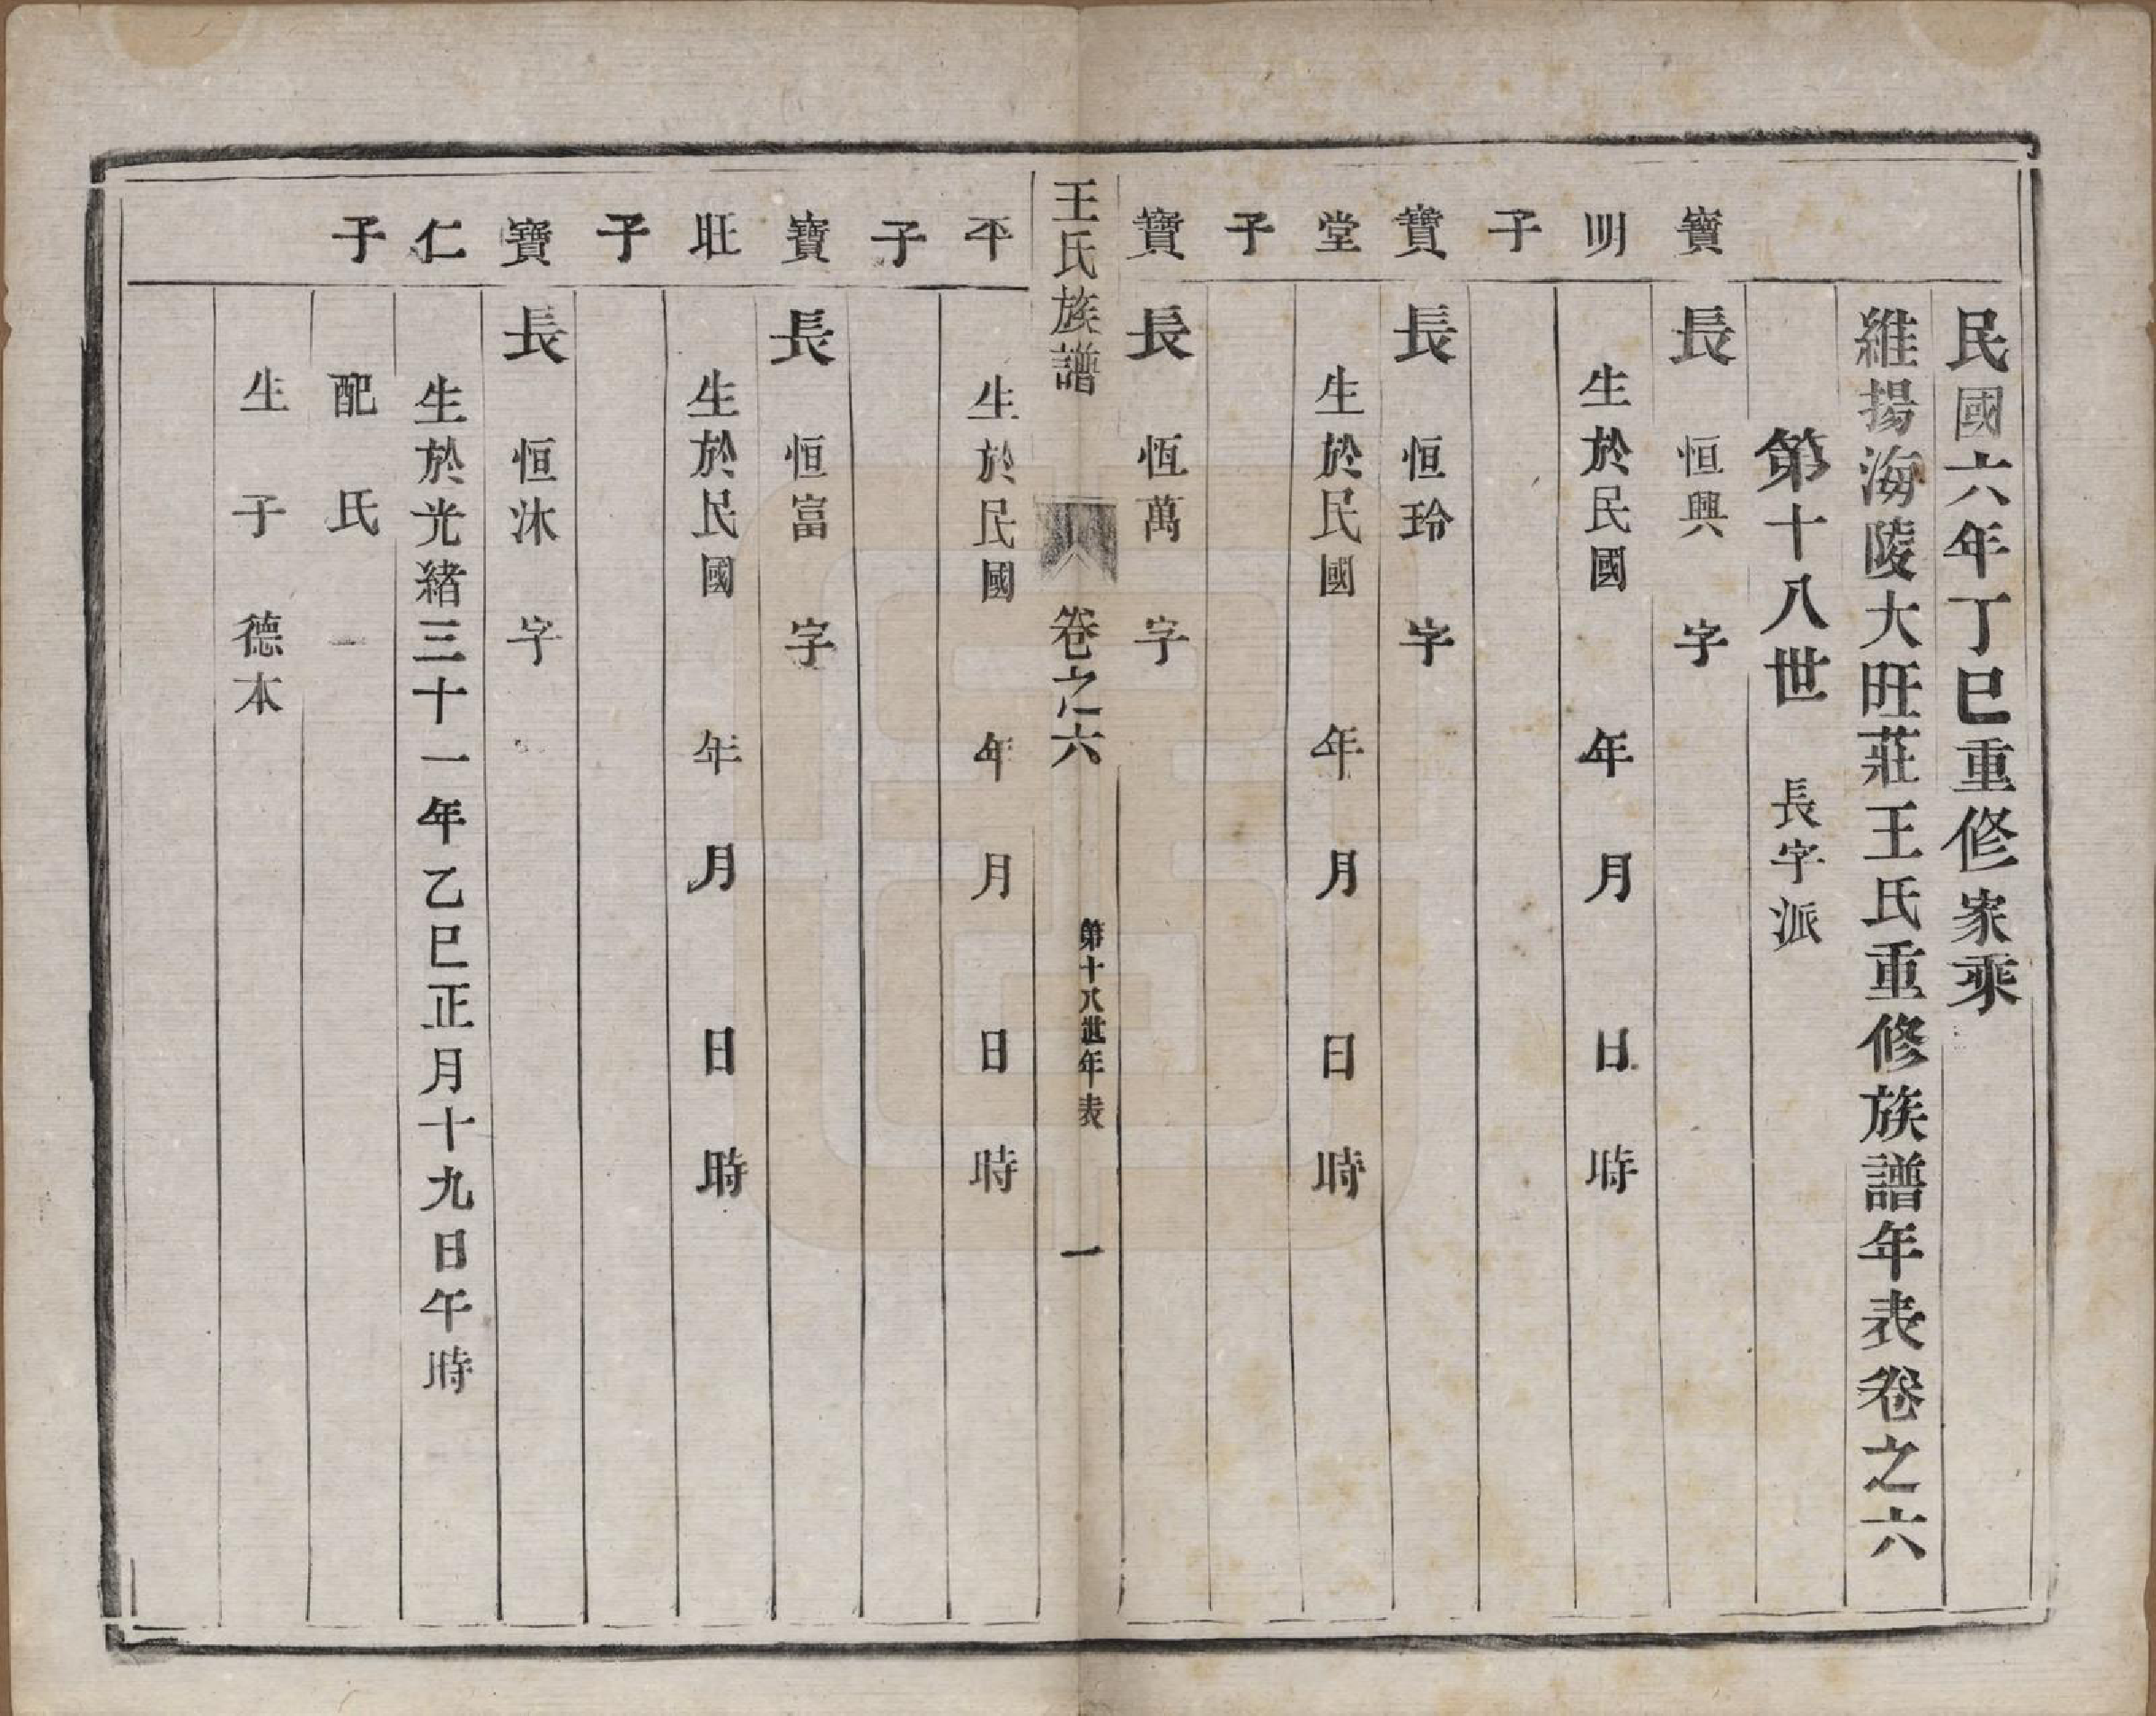 民國六年丁巳重修家乘
維揚海陵大旺莊王氏重修族譜年表卷之六
第十八世　長字派
寶　長　恒興　字
明　生於民國　年　月　日　時
子
寶　長　恒玲　字
堂　生於民國　年　月　日　時
子
寶　長　恆萬　字
王氏族譜　卷之六　第十八世年表　一
平　生於民國　年　月　日　時
子
寶　長　恒富　字
壯　生於民國　年　月　日　時
子
寶　長　恒沐　字
仁　生於光緒三十一年乙巳正月十九日午時
子　配　氏
生　子　德本